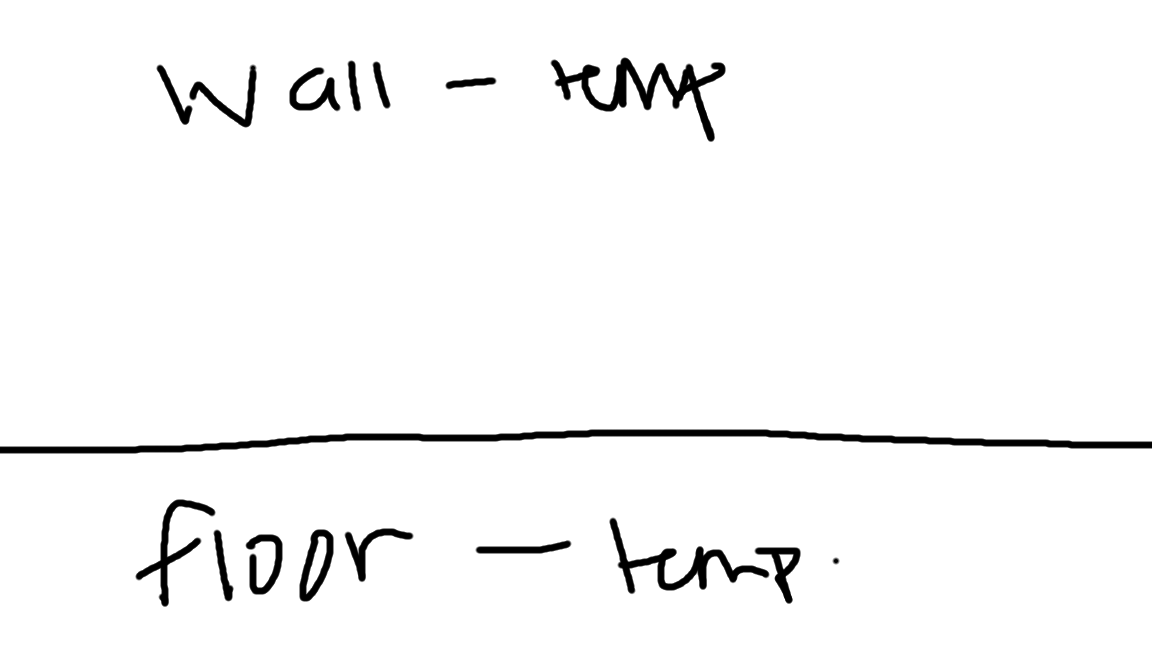 Wall - temp
floor - temp.